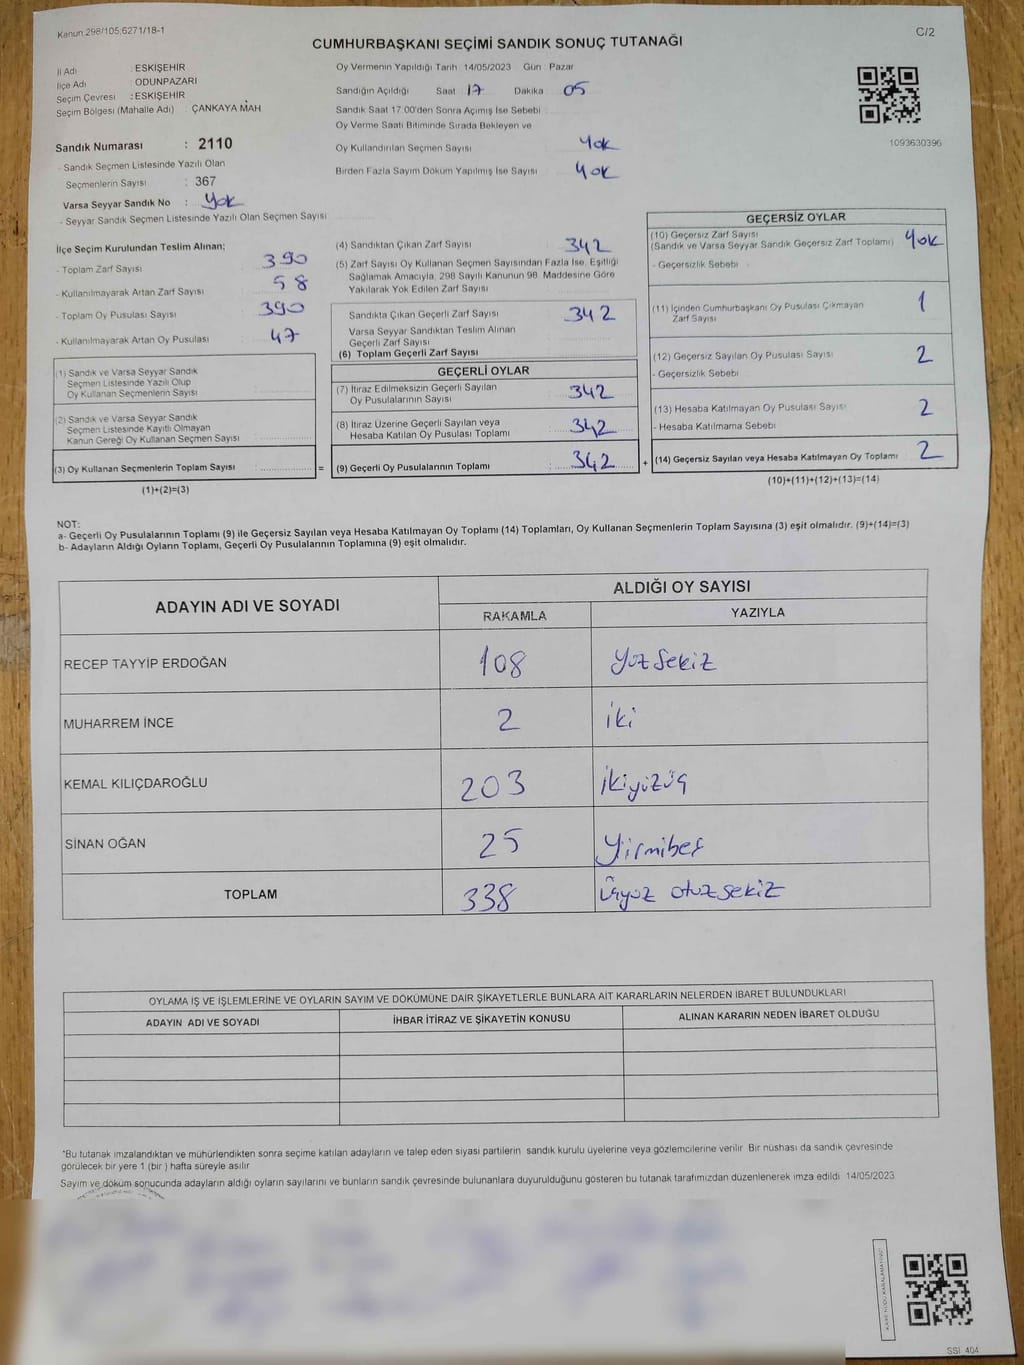 Kanun.298/105;6271/18-1
C/2
CUMHURBAŞKANI SEÇİMİ SANDIK SONUÇ TUTANAĞI
İl Adı : ESKİŞEHİR
İlçe Adı : ODUNPAZARI
Seçim Çevresi : ESKİŞEHİR
Seçim Bölgesi (Mahalle Adı) : ÇANKAYA MAH
Sandık Numarası : 2110
- Sandık Seçmen Listesinde Yazılı Olan
Seçmenlerin Sayısı : 367
Varsa Seyyar Sandık No : Yok
- Seyyar Sandık Seçmen Listesinde Yazılı Olan Seçmen Sayısı
Oy Vermenin Yapıldığı Tarih 14/05/2023 Gün : Pazar
Sandığın Açıldığı Saat 17 Dakika 05
Sandık Saat 17.00'den Sonra Açımış İse Sebebi
Oy Verme Saati Bitiminde Sırada Bekleyen ve
Oy Kullandırılan Seçmen Sayısı Yok
Birden Fazla Sayım Döküm Yapılmış İse Sayısı Yok
1093630396
İlçe Seçim Kurulundan Teslim Alınan;
- Toplam Zarf Sayısı 390
- Kullanılmayarak Artan Zarf Sayısı 58
- Toplam Oy Pusulası Sayısı 390
- Kullanılmayarak Artan Oy Pusulası 47
(1) Sandık ve Varsa Seyyar Sandık
Seçmen Listesinde Yazılı Olup
Oy Kullanan Seçmenlerin Sayısı
(2) Sandık ve Varsa Seyyar Sandık
Seçmen Listesinde Kayıtlı Olmayan
Kanun Gereği Oy Kullanan Seçmen Sayısı
(3) Oy Kullanan Seçmenlerin Toplam Sayısı : =
(1)+(2)=(3)
(4) Sandıktan Çıkan Zarf Sayısı 342
(5) Zarf Sayısı Oy Kullanan Seçmen Sayısından Fazla İse, Eşitliği
Sağlamak Amacıyla, 298 Sayılı Kanunun 98. Maddesine Göre
Yakılarak Yok Edilen Zarf Sayısı
Sandıkta Çıkan Geçerli Zarf Sayısı 342
Varsa Seyyar Sandıktan Teslim Alınan
Geçerli Zarf Sayısı
(6) Toplam Geçerli Zarf Sayısı
GEÇERLİ OYLAR
(7) İtiraz Edilmeksizin Geçerli Sayılan
Oy Pusulalarının Sayısı 342
(8) İtiraz Üzerine Geçerli Sayılan veya
Hesaba Katılan Oy Pusulası Toplamı 342
(9) Geçerli Oy Pusulalarının Toplamı : 342 +
GEÇERSİZ OYLAR
(10) Geçersiz Zarf Sayısı
(Sandık ve Varsa Seyyar Sandık Geçersiz Zarf Toplamı) Yok
- Geçersizlik Sebebi
(11) İçinden Cumhurbaşkanı Oy Pusulası Çıkmayan
Zarf Sayısı 1
(12) Geçersiz Sayılan Oy Pusulası Sayısı 2
- Geçersizlik Sebebi
(13) Hesaba Katılmayan Oy Pusulası Sayısı 2
- Hesaba Katılmama Sebebi
(14) Geçersiz Sayılan veya Hesaba Katılmayan Oy Toplamı : 2
(10)+(11)+(12)+(13)=(14)
NOT:
a- Geçerli Oy Pusulalarının Toplamı (9) ile Geçersiz Sayılan veya Hesaba Katılmayan Oy Toplamı (14) Toplamları, Oy Kullanan Seçmenlerin Toplam Sayısına (3) eşit olmalıdır. (9)+(14)=(3)
b- Adayların Aldığı Oyların Toplamı, Geçerli Oy Pusulalarının Toplamına (9) eşit olmalıdır.
ADAYIN ADI VE SOYADI ALDIĞI OY SAYISI
RAKAMLA YAZIYLA
RECEP TAYYİP ERDOĞAN 108 Yüzsekiz
MUHARREM İNCE 2 iki
KEMAL KILIÇDAROĞLU 203 İkiyüzüç
SİNAN OĞAN 25 Yirmibeş
TOPLAM 338 Üçyüz otuzsekiz
OYLAMA İŞ VE İŞLEMLERİNE VE OYLARIN SAYIM VE DÖKÜMÜNE DAİR ŞİKAYETLERLE BUNLARA AİT KARARLARIN NELERDEN İBARET BULUNDUKLARI
ADAYIN ADI VE SOYADI İHBAR İTİRAZ VE ŞİKAYETİN KONUSU ALINAN KARARIN NEDEN İBARET OLDUĞU
*Bu tutanak imzalandıktan ve mühürlendikten sonra seçime katılan adayların ve talep eden siyasi partilerin sandık kurulu üyelerine veya gözlemcilerine verilir. Bir nüshası da sandık çevresinde
görülecek bir yere 1 (bir ) hafta süreyle asılır.
Sayım ve döküm sonucunda adayların aldığı oyların sayılarını ve bunların sandık çevresinde bulunanlara duyurulduğunu gösteren bu tutanak tarafımızdan düzenlenerek imza edildi. 14/05/2023
SSİ 404